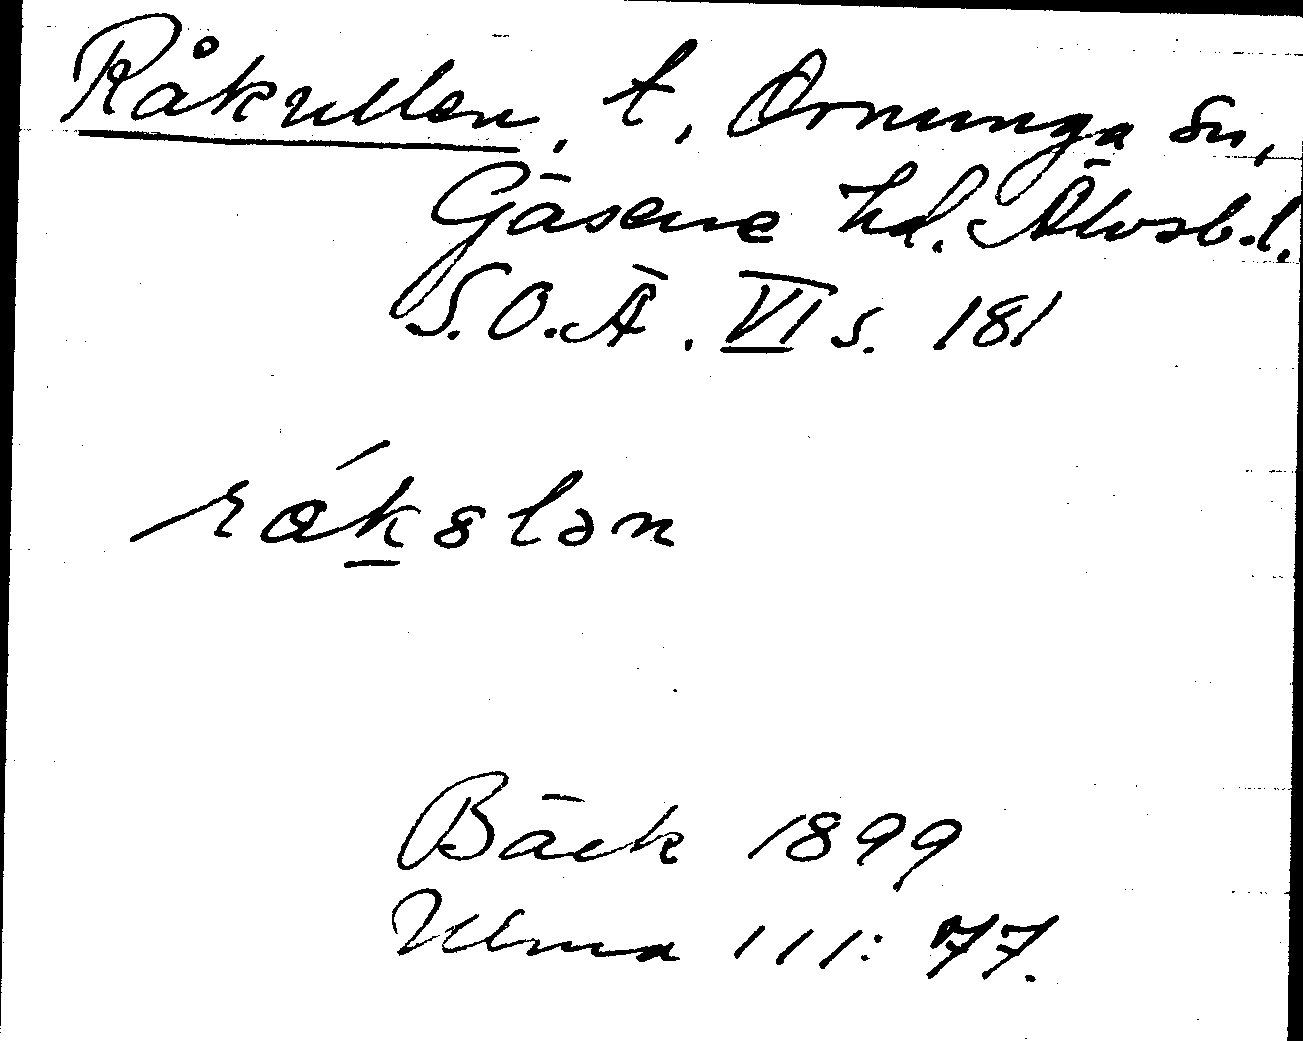 Råkullen, t, Ornunga sn,
Gäsene hd. Älvsb.l.
S.O.Ä. VI s. 181
rák8lən
Bäck 1899
Ulma 111: 77.